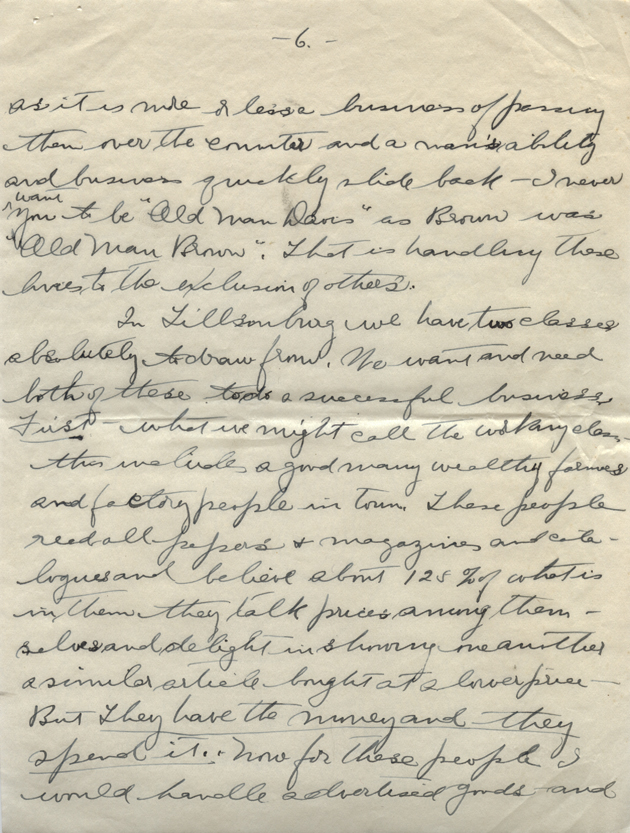 -6.-
as it is more or less a business of passing
them over the counter and a man's ability
and business quickly slide back - I never
want
you to be "Old Man Davis" as Brown was
"Old Man Brown". That is handling these
lines to the exclusion of others.
In Tillsonburg we have two classes
absolutely to draw from. We want and need
both of these to do a successful business.
First - what we might call the working class-
this includes a good many wealthy farmers
and factory people in town. These people
read all papers & magazines and cata-
logues and believe about 125% of what is
in them they talk prices among them-
selves and delight in showing one another
a similar article bought at a lower price -
But they have the money and they
spend it. Now for these people I
would handle advertised goods and